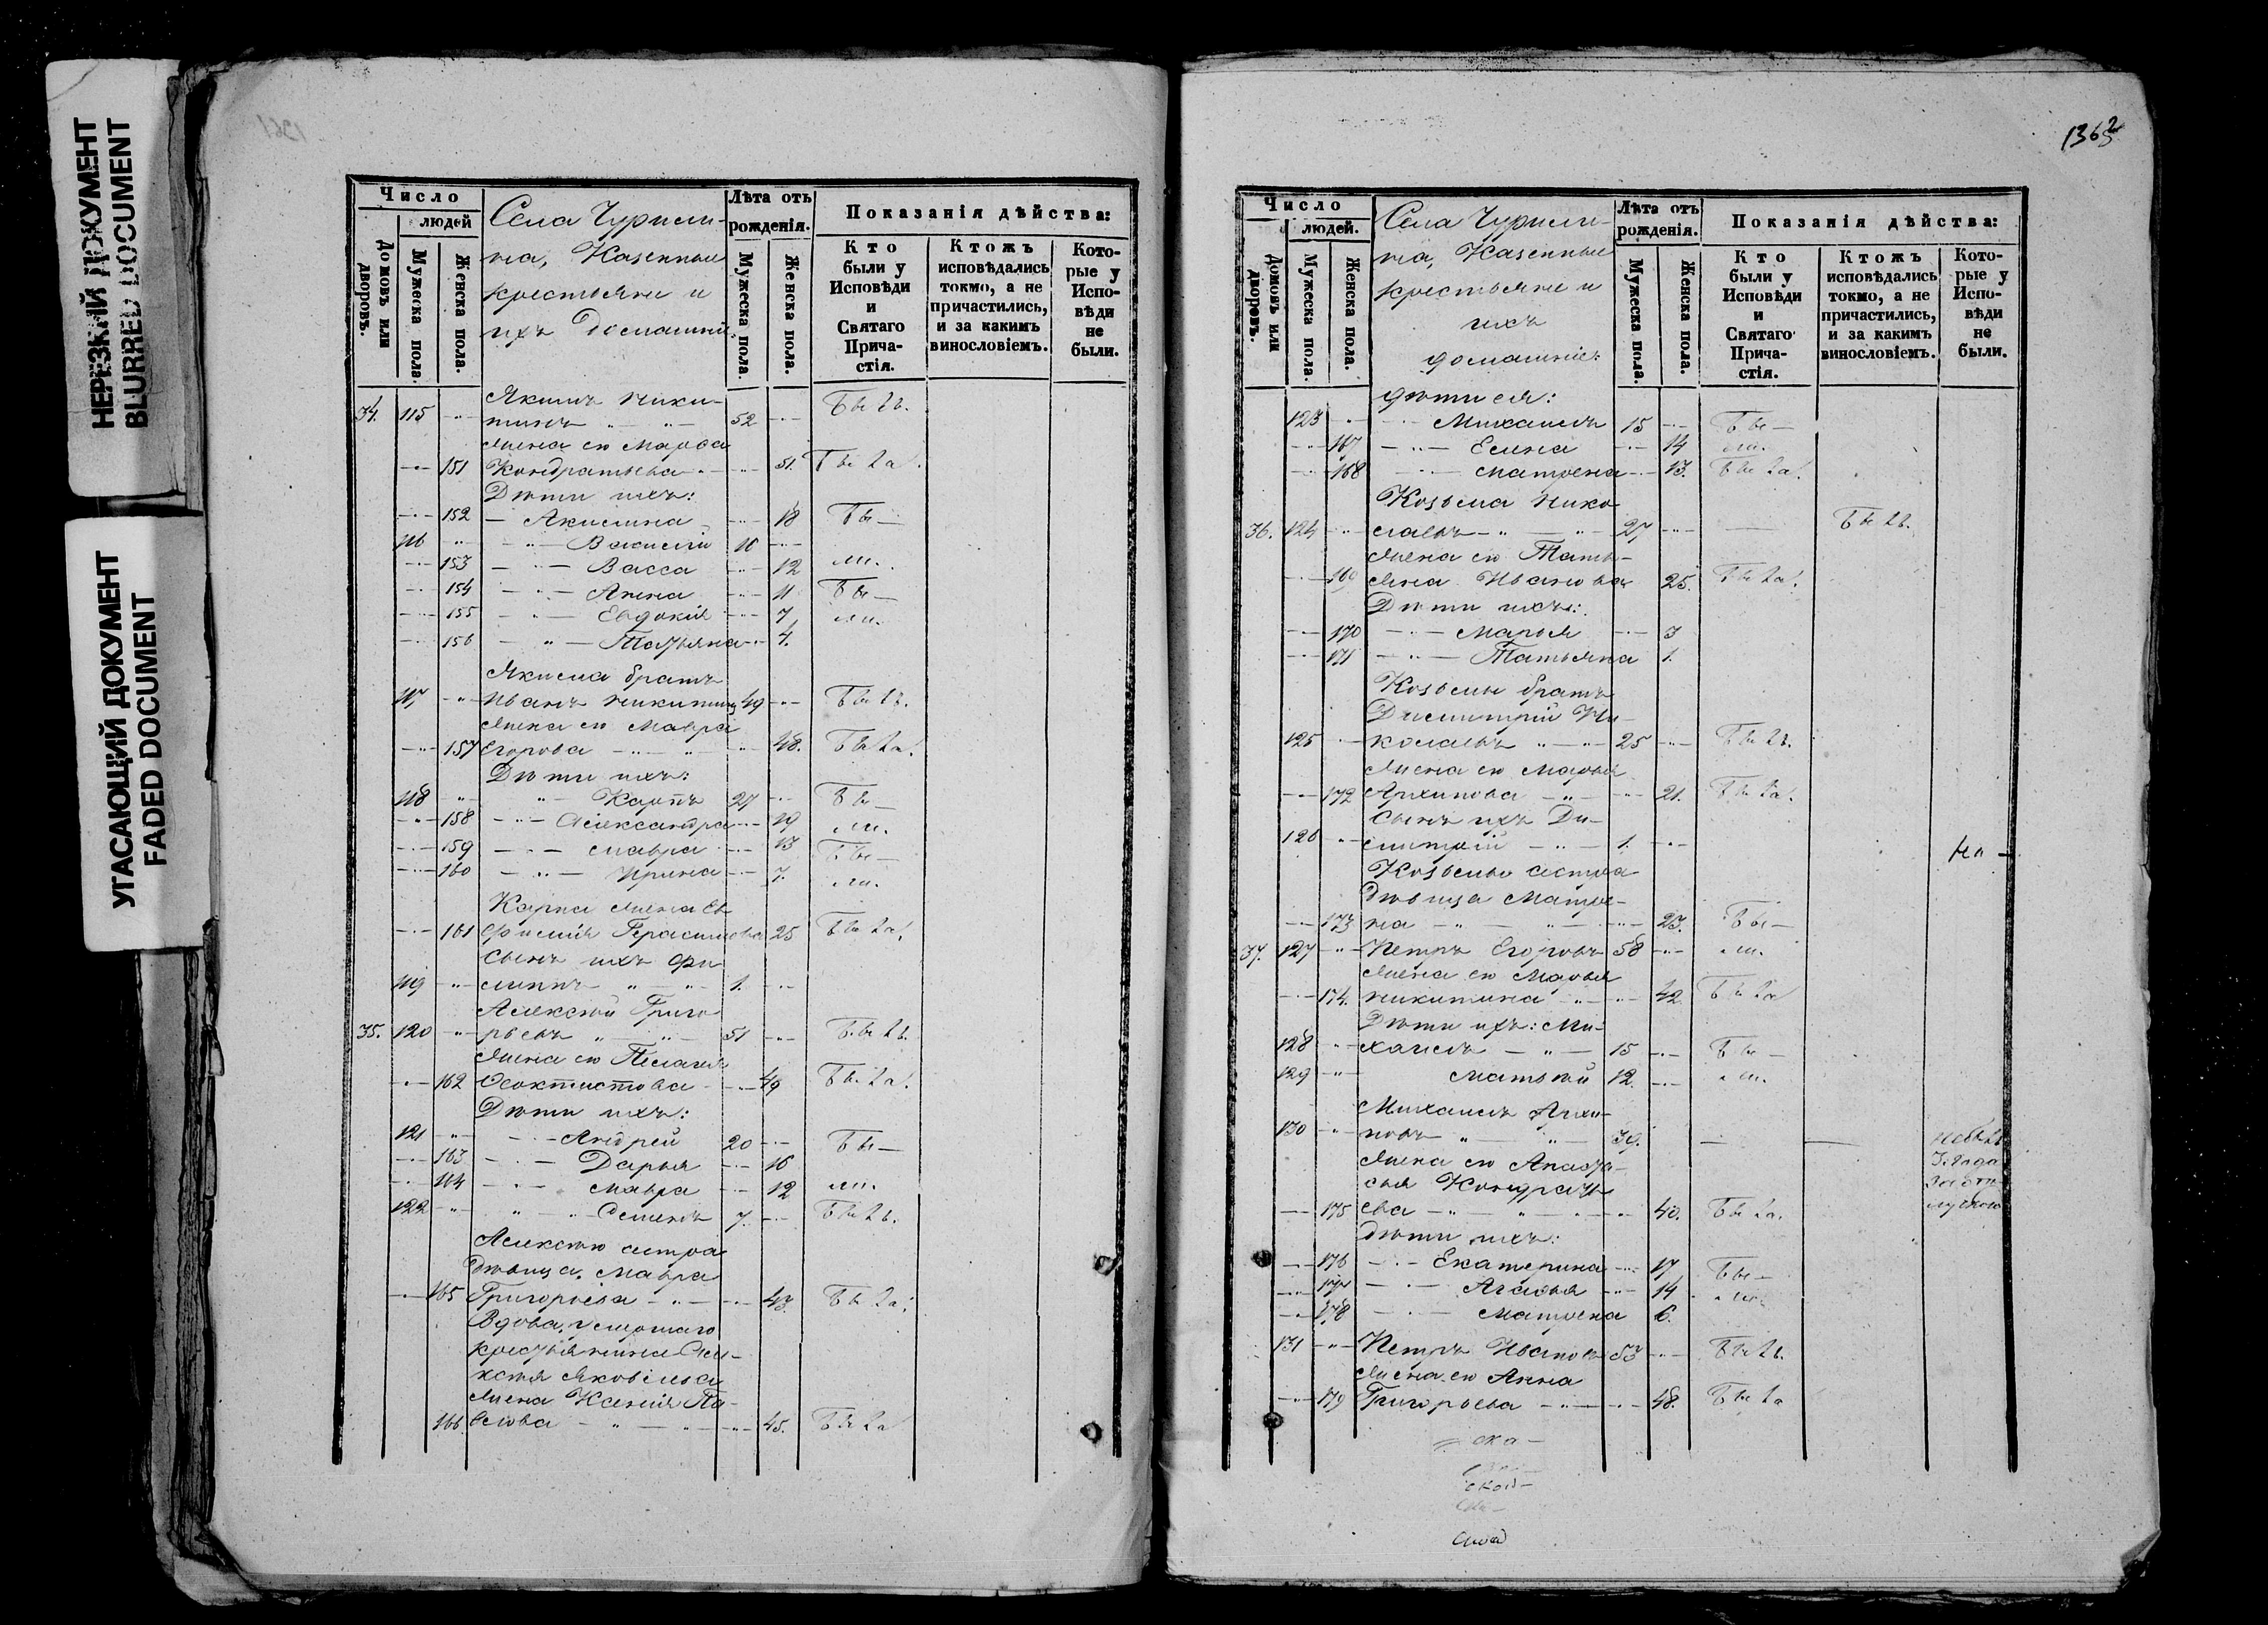 НЕРЕЗКИЙ ДОКУМЕНТ
BLURRED DOCUMENT
УГАСАЮЩИЙ ДОКУМЕНТ
FADED DOCUMENT
Число
людей
Домовъ или дворовъ.
Мужеска пола.
Женска пола.
Села Чурили-
на, Казенныи
крестьяне и
ихъ Домашніе
Лѣта отъ
рожденія.
Мужеска пола.
Женска пола.
Показанія дѣйства:
Кто
были у
Исповѣди
и
Святаго
Прича-
стія.
Ктожъ
исповѣдались
токмо, а не
причастились,
и за какимъ
винословіемъ.
Кото-
рые у
Испо-
вѣди
не
были.
Якимъ Ники-
34. 115 тинъ 52 Былъ.
Жена его Марѳа
151 Кондратьева 51. Была.
Дѣти ихъ:
152 Акилина 18 Бы—
116 Василій 16
153 Васса 12 ли.
154 Анна 11 Бы—
155 Евдокія 7 ли.
156 Татьяна 4.
Якима братъ
117 Иванъ Никитинъ 49 Былъ.
Жена его Мавра
157 Егорова 48. Была.
Дѣти ихъ:
118 Карпъ 27 Бы—
158 Александра 19 ли.
159 Мавра 13 Бы—
160 Ирина 7. ли.
Карпа жена Ев
161 фимія Герасимова 25 Была.
Сынъ ихъ Фи
119 липпъ 1.
Алексѣй Григо
35. 120 рьевъ 51 Былъ.
Жена его Пелагія
162 Ѳеоктистова 49 Была.
Дѣти ихъ:
121 Андрей 20 Бы—
163 Дарья 16
164 Мавра 12 ли.
122 Семенъ 7. Былъ.
Алексѣю сестра
Дѣвица, Мавра
165 Григорьева 43. Была.
Вдова, умершаго
крестьянина Але-
ксѣя Яковлева
жена Ксенія Па-
166. влова 45. Была
1362
Число
людей.
Домовъ или дворовъ.
Мужеска пола.
Женска пола.
Села Чурили-
на, Казенныи
крестьяне и
ихъ
домашніе:
Лѣта отъ
рожденія.
Мужеска пола.
Женска пола.
Показанія дѣйства:
Кто
были у
Исповѣди
и
Святаго
Прича-
стія.
Ктожъ
исповѣдались
токмо, а не
причастились,
и за какимъ
винословіемъ.
Кото-
рые у
Испо-
вѣди
не
были.
дѣти ея:
123 Михаилъ 15 Бы—
167 Елена 14 ли.
168 Матрена 13. Была.
Козьма Нико
36. 124 лаевъ 27 Былъ.
Жена его Тать-
169 яна Иванова 25. Была.
Дѣти ихъ:
170 Марья 3
171 Татьяна 1.
Козьмы братъ
Димитрій Ни-
125 колаевъ 25 Былъ.
Жена его Марья
172 Архипова 21. Была.
Сынъ ихъ Ди-
126 митрій 1.
Козьмы сестра
дѣвица Матре-
173 на 23. Бы—
37. 127 Петръ Егоровъ 58 ли.
Жена его Марья
174. Никитина 42 Была
Дѣти ихъ: Ми-
128 хаилъ 15 Бы—
129 Матвѣй 12. ли.
Михаилъ Архи-
130 повъ 39. небылъ
Жена его Анаста-
сья Кондрать
175 ева 40. Была.
Дѣти ихъ:
176 Екатерина 17 Бы—
177 Агафья 14 ли.
178 Матрена 6.
131 Петръ Ивановъ 53 Былъ.
Жена его Анна
179 Григорьева 48. Была